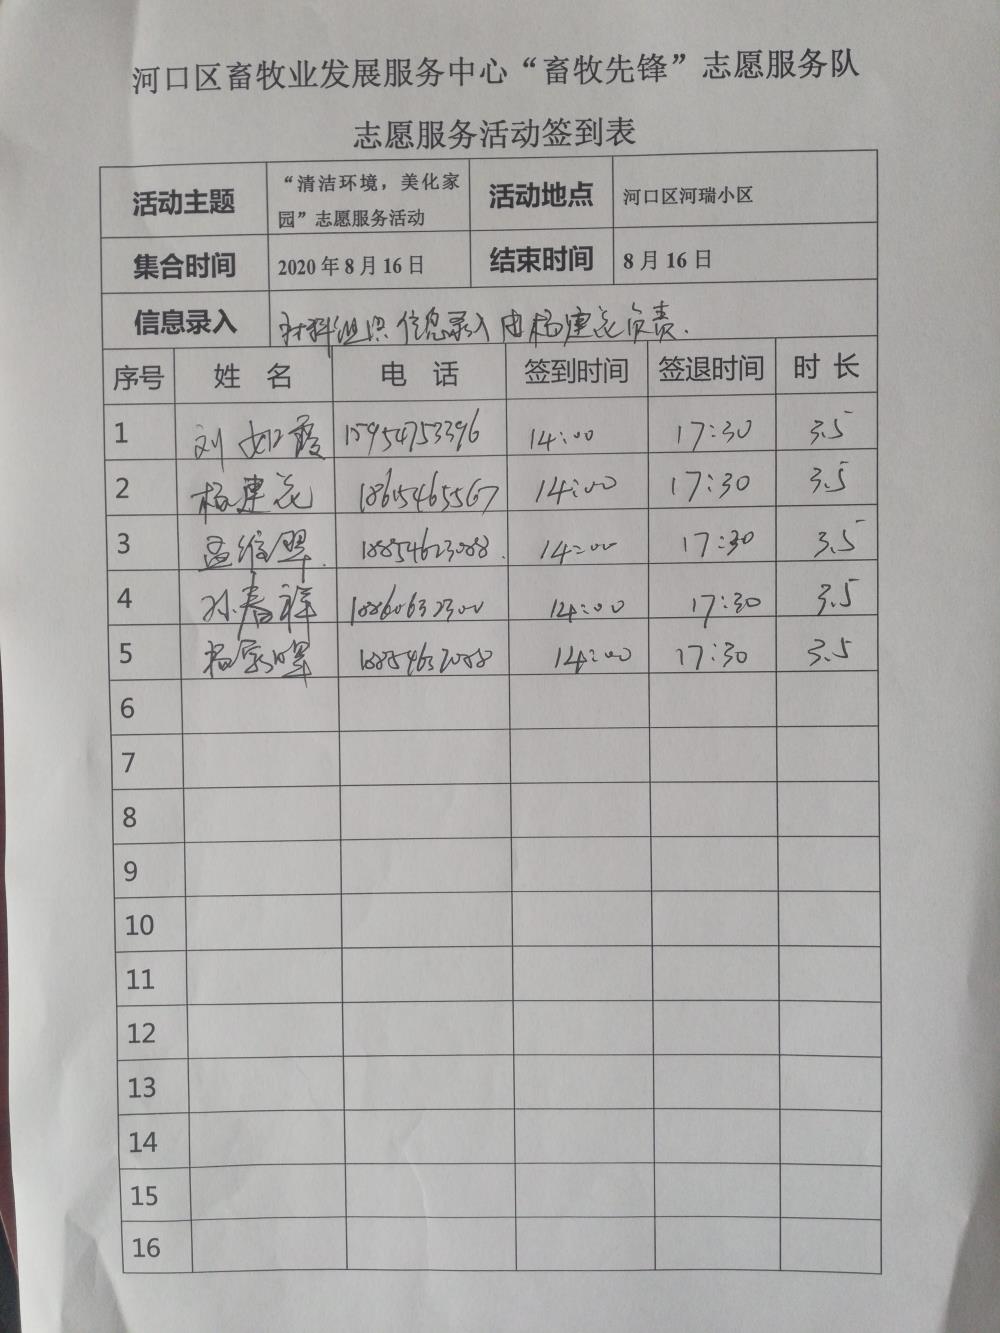 河口区畜牧业发展服务中心“畜牧先锋”志愿服务队
志愿服务活动签到表
活动主题 “清洁环境，美化家园”志愿服务活动 活动地点 河口区河瑞小区
集合时间 2020年8月16日 结束时间 8月16日
信息录入 材料组织 信息录入由杨建花负责.
序号 姓 名 电 话 签到时间 签退时间 时 长
1 刘如霞 15954753396 14:00 17:30 3.5
2 杨建花 18615465567 14:00 17:30 3.5
3 孟维 18854623088. 14:00 17:30 3.5
4 孙春祥 18860632300 14:00 17:30 3.5
5 14:00 17:30 3.5
6
7
8
9
10
11
12
13
14
15
16